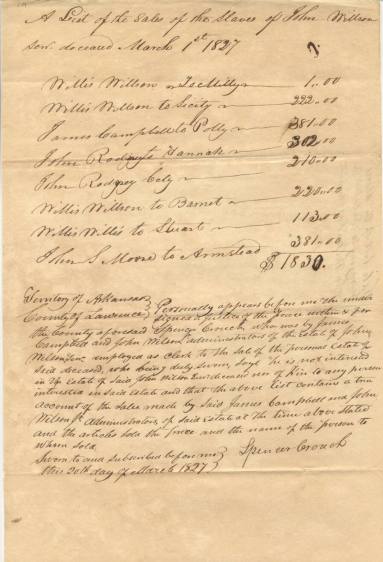 A List of the Sales of the Slaves of John Willson
senr deceased March 1st 1827
Willis Willson to Milly 1..00
Willis Willson to Sicily 222..00
James Campbell to Polly 381..00
John Rodney to Hannah 302.00
John Rodney Cely 210..00
Willis Willson to Barnet 220..00
Willis Willis to Stuart 113.00
John S Moore to Armstead 381..00
$1830.
Territory of Arkansas
County of Lawrence Personally appears before me the under
signed a justice of the peace within & for
the County aforesaid Spencer Crouch who was by James
Campbell and John Wilson administrators of the Estate of John
Wilson Senr employed as clerk to the Sale of the personal Estate of
said deceased, who being duly sworn says he is not interested
in the Estate of said John Wilson Senr deceased nor of Kin to any person
interested in said Estate and that the above list contains a true
account of the sales made by said James Campbell and John
Wilson Jr Administrators of said Estate at the time above Stated
and the articles sold the price and the name of the person to
whom sold.
Sworn to and subscribed before me Spencer Crouch
this 20th day of March 1827